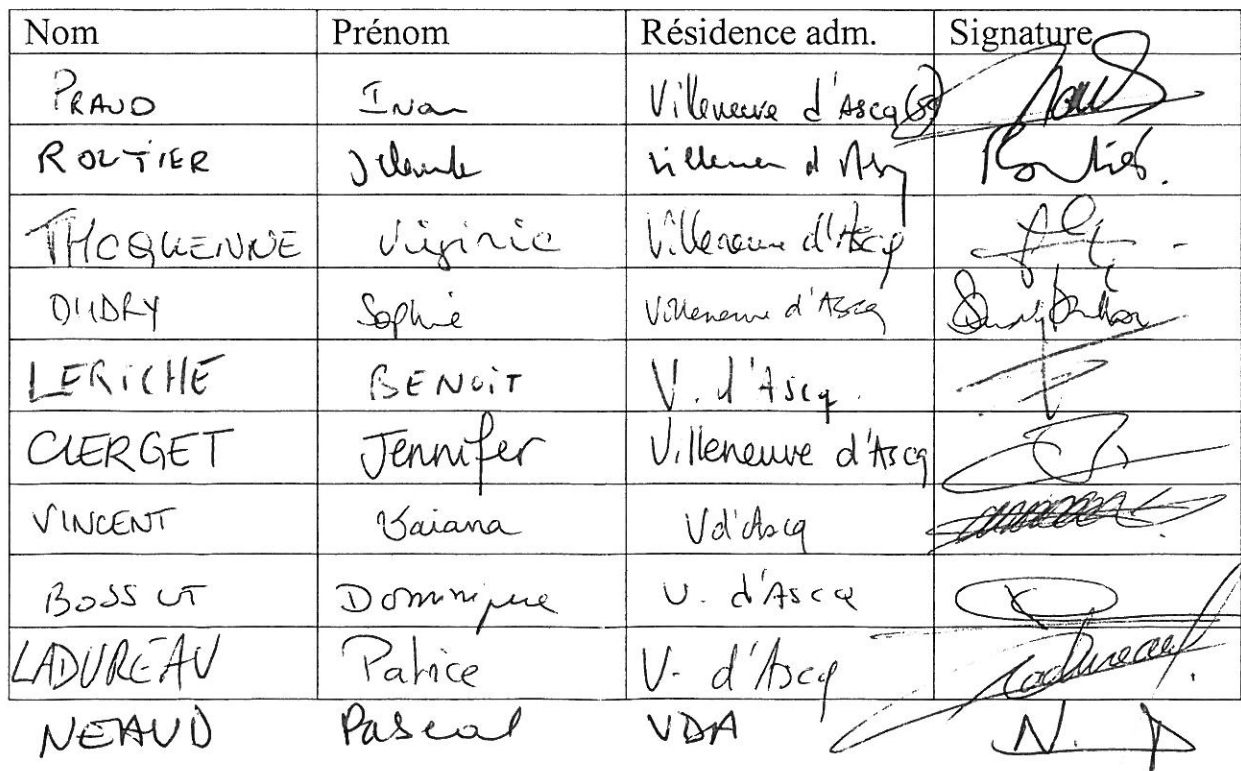 Nom Prénom Résidence adm. Signature
PRAUD Ivan Villeneuve d'Ascq
ROUTIER Villeneuve d'Ascq Routier
THOQUENNE Virginie Villeneuve d'Ascq
OUDRY Sophie Villeneuve d'Ascq
LERICHE BENOIT V. d'Ascq.
CLERGET Jennifer Villeneuve d'Ascq
VINCENT Vaiana V d'Ascq
BOSSUT Dominique V. d'Ascq
LADUREAU Patrice V. d'Ascq Ladureau
NEAUD Pascal VDA N. P